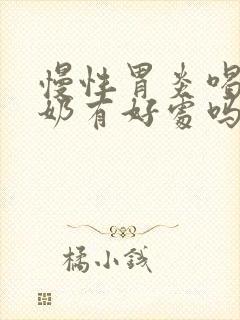 慢性胃炎喝
奶有好处吗
橘小钱